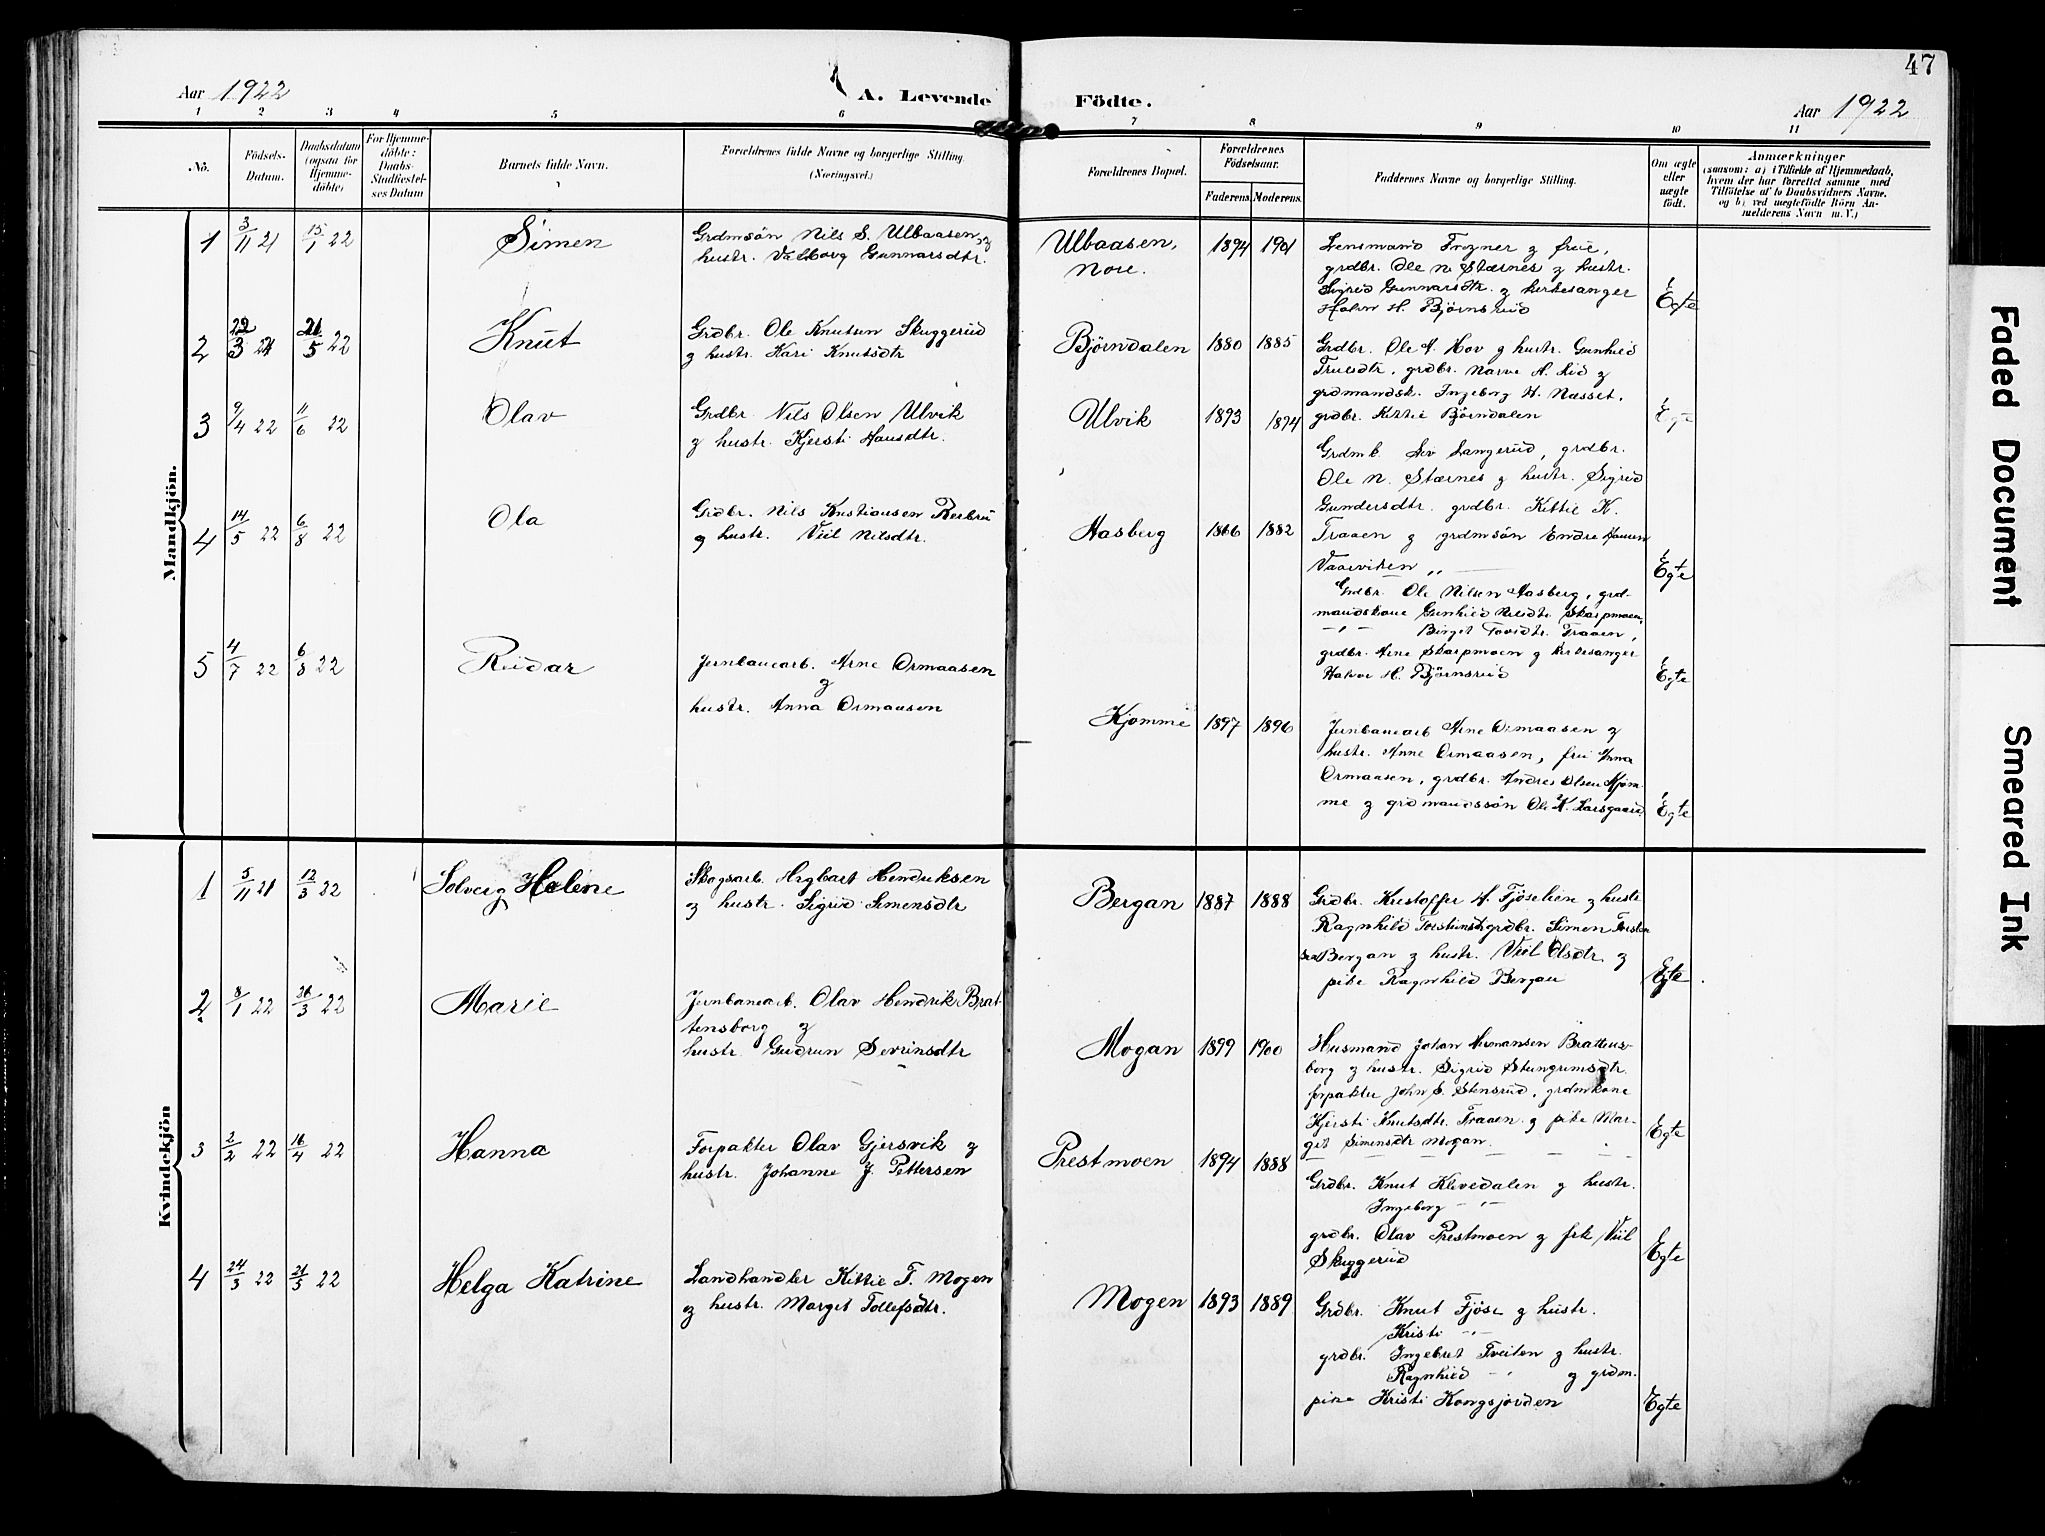 47
Aar 1922
A. Levende Födte.
Aar 1922
1 2 3 4 5 6 7 8 9 10 11
No.
Födsels-
Datum.
Daabsdatum
(ogsaa for
Hjemme-
döbte)
For Hjemme-
döbte:
Daabs-
Stadfæstel-
ses Datum
Barnets fulde Navn.
Forældrenes fulde Navne og borgerlige Stilling
(Næringsvei.)
Forældrenes Bopæl.
Forældrenes
Födselsaar.
Faderens Moderens.
Faddernes Navne og borgerlige Stilling.
Om ægte
eller
uægte
födt.
Anmærkninger
(saasom: a) i Tilfælde af Hjemmedaab,
hvem der har forrettet samme med
Tilföielse af to Daabsvidners Navne.
og b) ved uægtefödte Börn An-
melderens Navn m. V.)
Mandkjön.
1 3/11 21 15/1 22 Simen
Grdmsön Nils S. Ulbaasen og
hustr. Valborg Gunnarsdtr.
Ulbaasen,
Nore.
1894 1901
Lensmand Frogner og frue,
grdbr. Ole N. Stærnes og hustr.
Sigrid Gunnarsdtr. og kirkesanger
H. Björnsrud
Egte
2 22/3 21/5 22 Knut
Grdbr. Ole Knutsen Skuggerud
og hustr. Kari Knutsdtr
Björndalen 1880 1885
Grdbr. Ole A. Hov og hustr. Gunhild
Truesdtr, grdbr. Narve A. Lid og
grdmandsk. Ingeborg H. Næsset,
grdbr. Kittil Björndalen
3 9/4 22 11/6 22 Olav
Grdbr. Nils Olsen Ulvik
og hustr. Kjersti Hansdtr.
Ulvik 1893 1894
Grdmk. Liv Langerud, grdbr.
Ole N. Stærnes og hustr. Sigrid
Gundersdtr. grdbr. Kittil K.
Traaen og grdmsön Endre Hansen
Vaarviken
Egte
4 14/5 22 6/8 22 Ola
Grdbr. Nils Kristiansen
og hustr. Viil Nilsdtr.
Aasberg 1866 1882
Grdbr. Ole Nilsen Aasberg, grd-
mandskone Gunhild Nilsdtr. Skarpmoen,
— " — Birget Tovsdtr. Traaen,
grdbr. Arne Skarpmoen og kirkesanger
Halvor H. Björnsrud
Egte
5 4/7 22 6/8 22 Reidar
Jernbanearb. Arne Ormaasen
og
hustr. Anna Ormaasen
Kjømme 1897 1896
Jernbanearb Arne Ormaasen og
hustr. Anne Ormaasen, fru Anna
Ormaasen, grdbr. Andres Olsen Kjøm-
me og grdmandssön Ole K. Larsgaard.
Egte
Kvindekjön
1 5/11 21 12/3 22 Solveig Helene
Skogsarb. Hegbart Hendriksen
og hustr. Sigrid Simensdtr
Bergan 1887 1888
Grdbr. Kristoffer H. Fjöselien og hustr
Ragnhild Torsteinsdt grdbr. Simen Torsten
sen Bergan og hustr. Viil Olsdtr. og
pike Ragnhild Bergan
Egte
2 8/1 22 26/3 22 Marie
Jernbanearb. Olav Hendrik Brat-
tensborg og
hustr. Gudrun Sevrinsdtr
Mogan 1899 1900
Husmand Johan Hermansen Brattens-
borg og hustr. Sigrid Stengrimsdtr.
forpakter John S. Stensrud, grdmkone
Kjersti Knutsdtr. Traaen og pike Mar-
get Simensdtr Mogan.
Egte
3 2/2 22 16/4 22 Hanna
Forpakter Olav Gjersvik og
hustr. Johanne J. Pettersen
Prestmoen 1894 1888
Grdbr. Knut Klevedalen og hustr.
Ingeborg — " —
grdbr. Olav Prestmoen og frk Viil
Skuggerud
Egte
4 24/3 22 21/5 22 Helga Katrine
Landhandler Kittil T. Mogen
og hustr. Marget Tollefsdtr.
Mogen 1893 1889
Grdbr. Knut Fjöse og hustr.
Kristi — " —
grdbr. Ingebret Tveiten og hustr.
Ragnhild — " — og grdm.
pike Kristi Kongsjorden
Egte
Faded Document
Smeared Ink